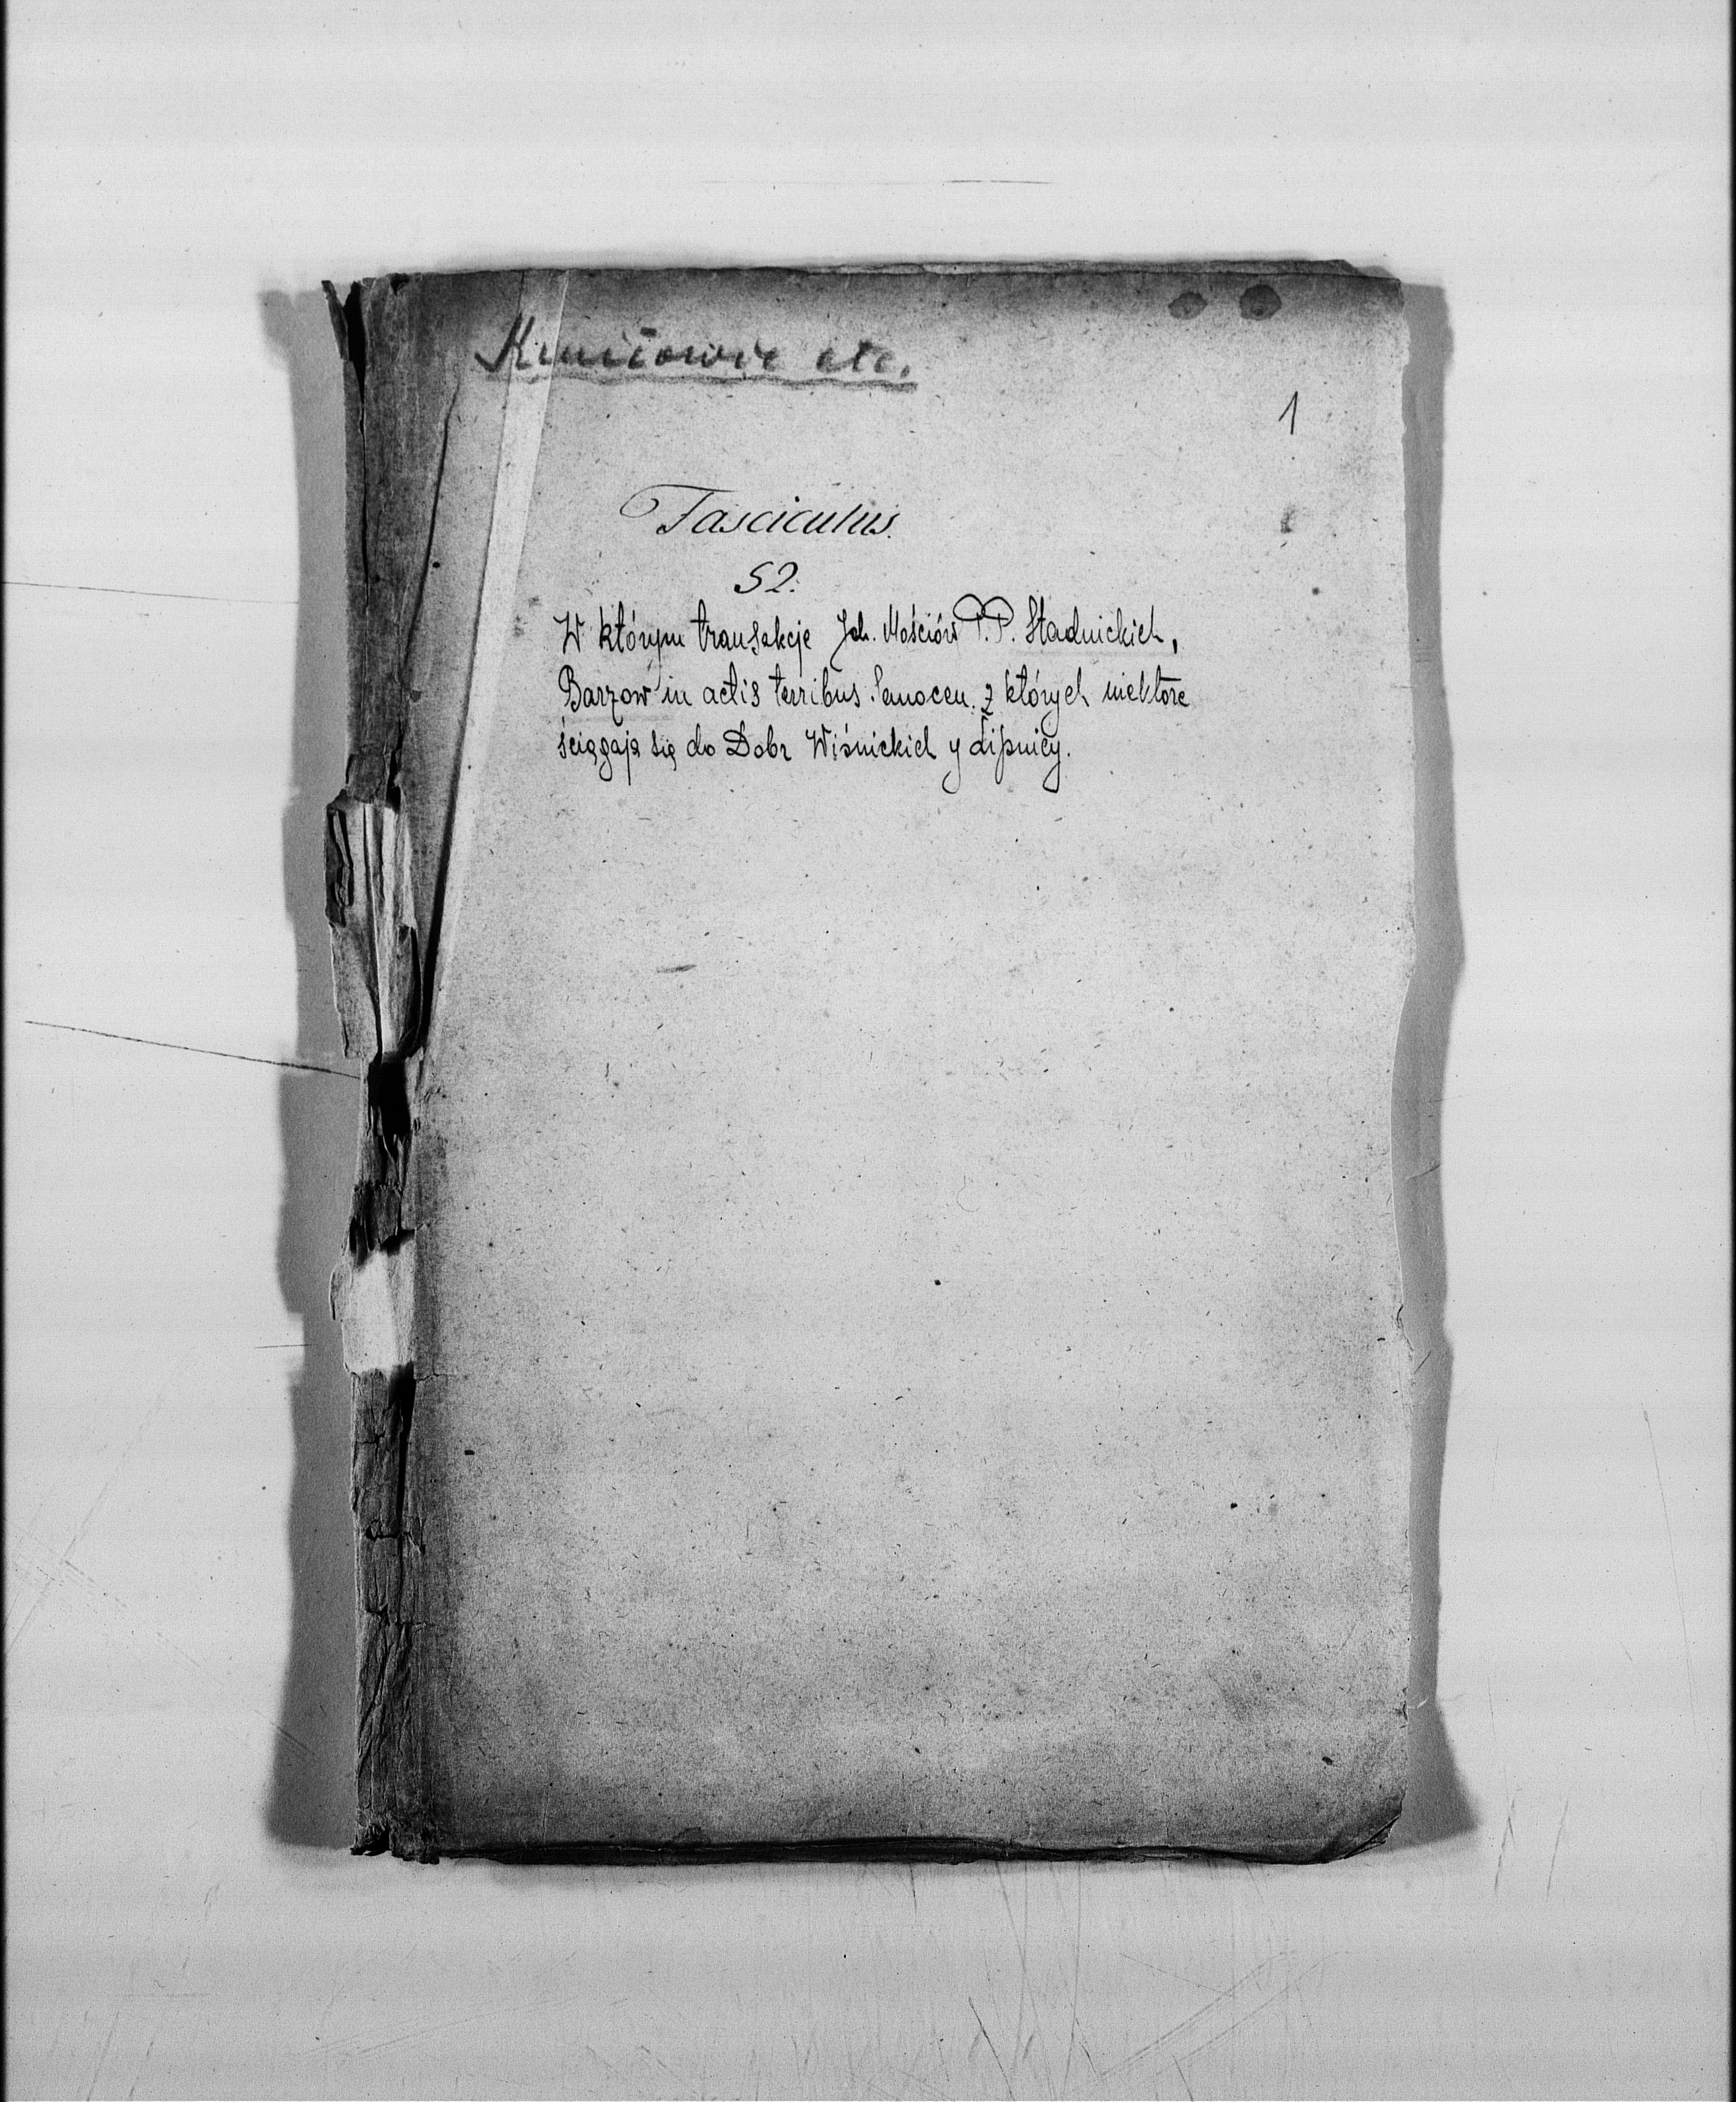 Kmitowie etc.
1
Fasciculus.
52.
W którym transakcje Jch. Mościów P.P. Stadnickich,
Barzow in actis terribus. Sanocen. z których niektore
ściągają się do Dobr Wiśnickich y Lipnicy.